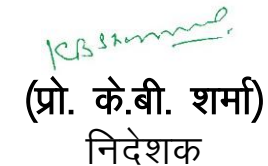 KBSharma
(प्रो. के.बी. शर्मा)
निदेशक